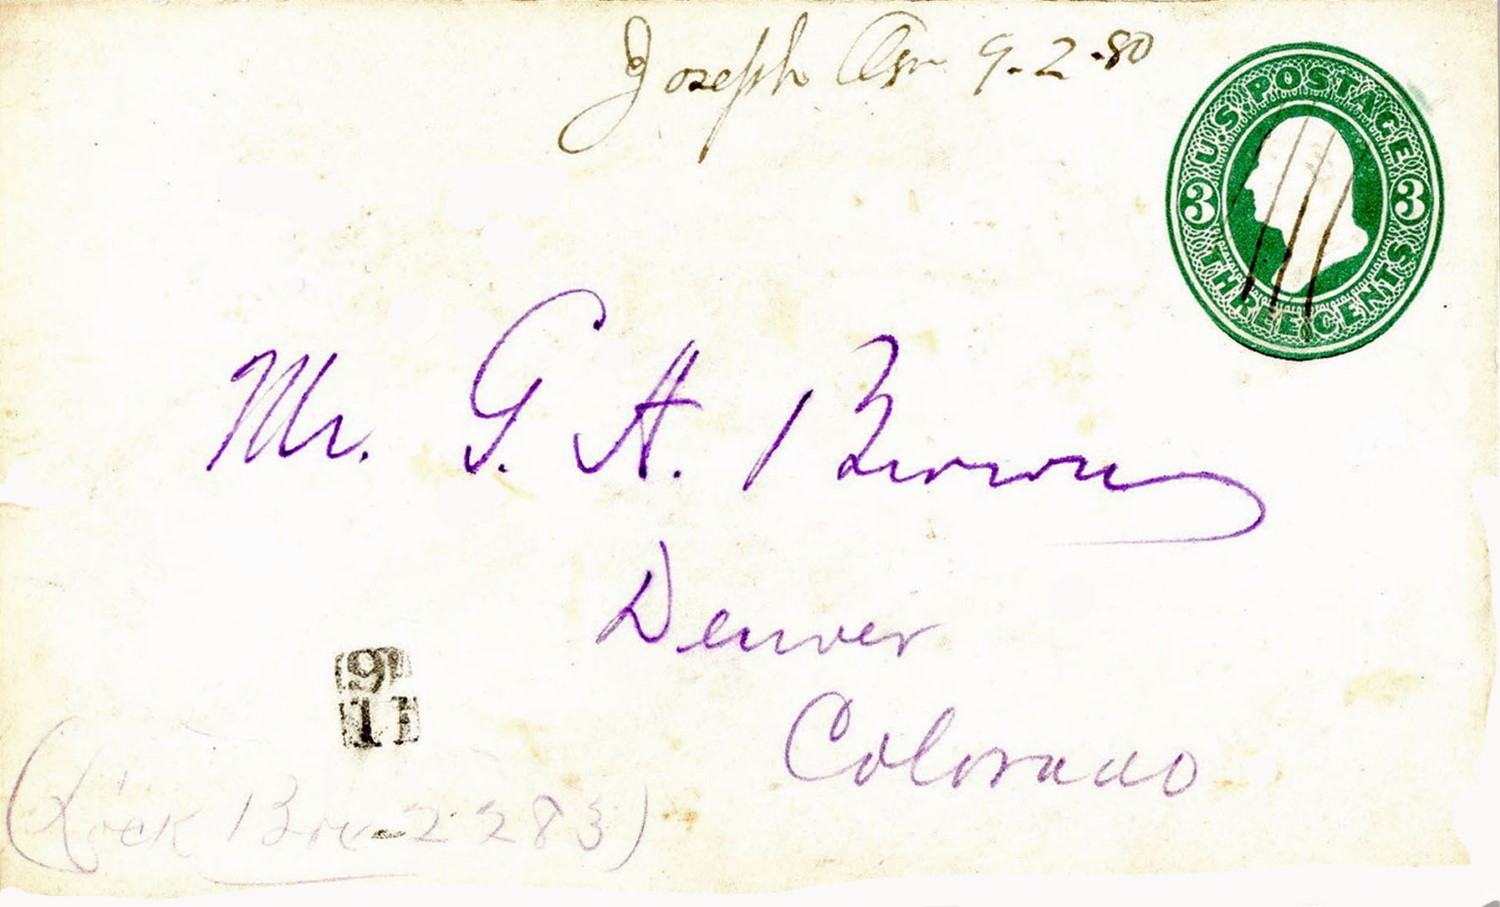 Joseph Ogn 9-2-80
U.S. POSTAGE
3 3
THREE CENTS
Mr. G. A. Brown
Denver
Colorado
9
1
(Lock Box 2283)